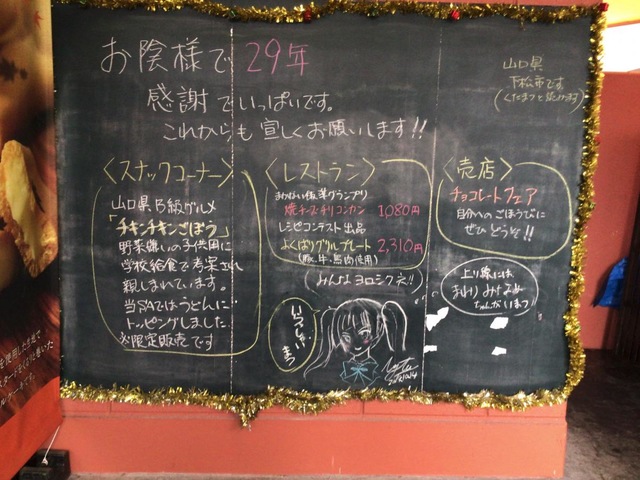 お陰様で 29年
感謝でいっぱいです。
これからも宣しくお願いします!!
山口県
下松市です
(くだまつと読みます)
<スナックコーナー>
山口県B級グルメ
「チキンチキンごぼう」
野菜嫌いの子供用に
学校給食で考案され
親しまれています。
当SAではうどんに
トッピングしました
限定販売です
<レストラン>
準グランプリ
焼チーズチリコンカン 1080円
レシピコンテスト出品
よくばりグルメプレート 2,310円
(豚、牛、馬肉使用)
(みんなヨロシクネ!!)
いらっしゃいまっ
<売店>
チョコレートフェア
自分へのごほうびに
ぜひどうぞ!!
上り線には
まわりみちなめ
ちゃんがいるよ